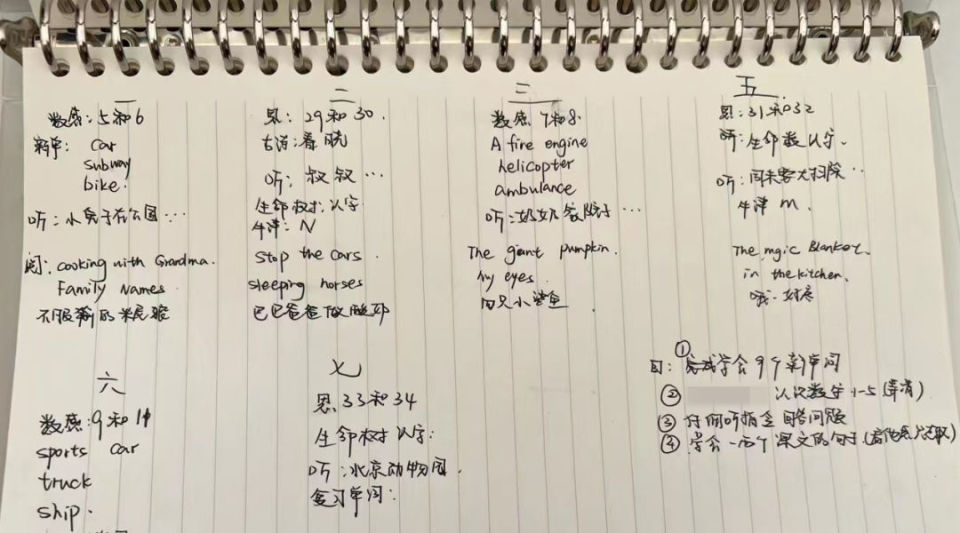 一
数感：5和6
car
subway
bike.
听：小兔子在公园…
阅：cooking with Grandma.
Family Names
不服输的米尼
二
思：29和30.
古诗：春晓
听：叔叔…
生命树：认字
牛津：N
stop the cars
sleeping horses
巴巴爸爸
三
数感 7和8.
A fire engine
helicopter
ambulance
听：奶奶家院子…
The giant pumpkin.
my eyes
四只小
五
思：31和32
听：生命树认字.
听：周末要大扫除…
牛津 m.
The mgic Blanket.
in the kitchen.
哦，
六
数感：9和10
sports car
truck
ship.
七
思.33和34
生命树 认字：
听：北京动物园.
复习单词：
目：① 学会9个新单词
② 认识数字1-5（
③ 仔细听指令 回答问题
④ 学会一两个课文的句子（